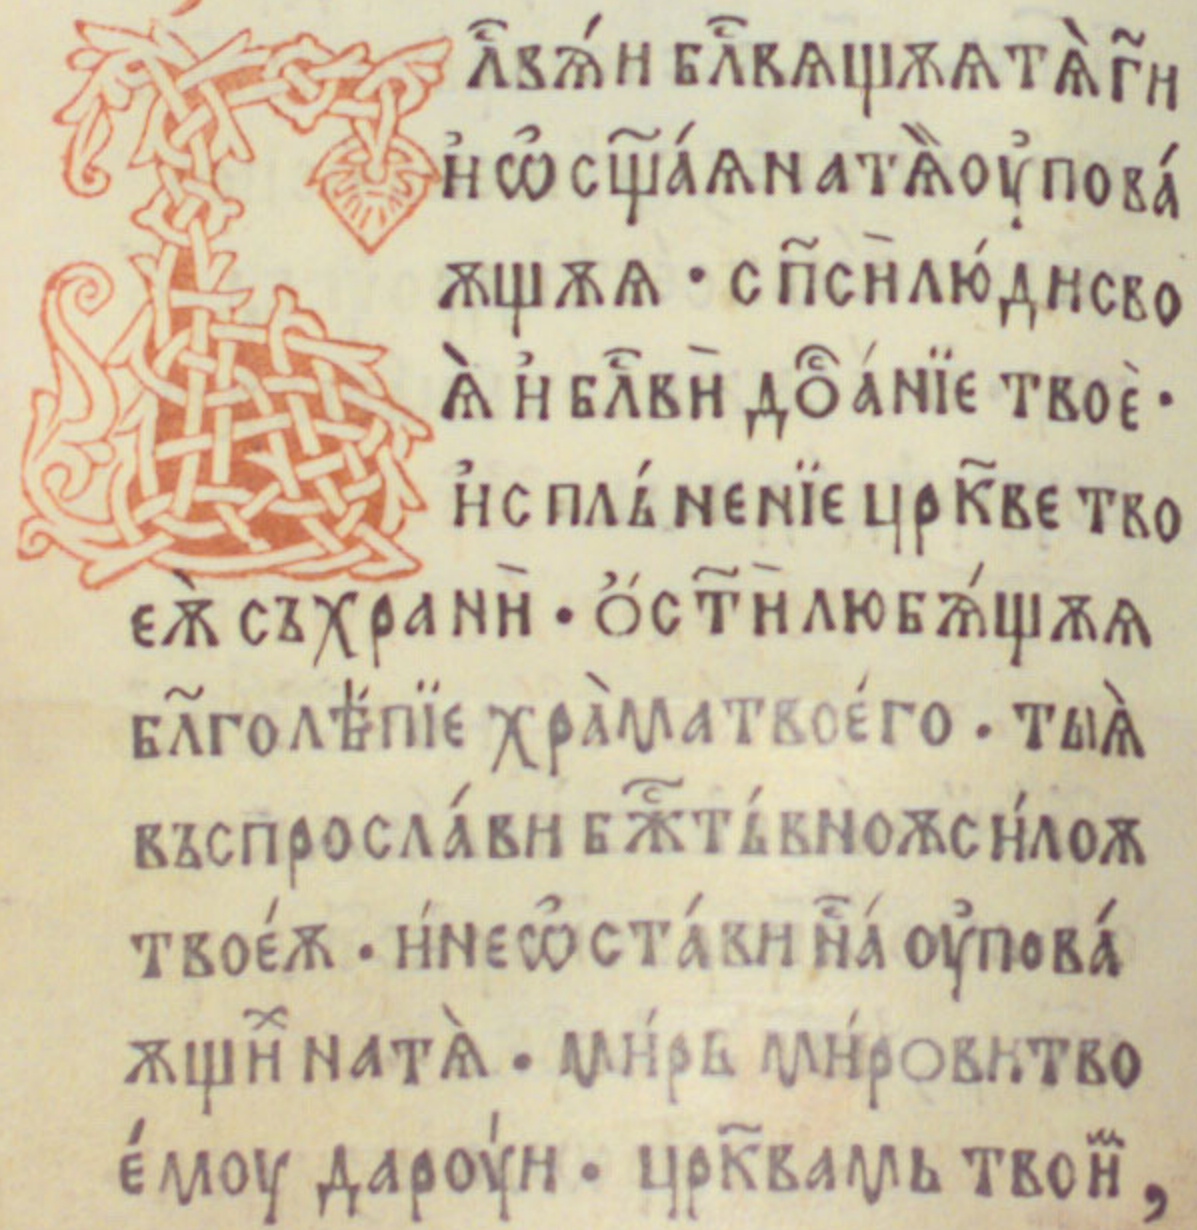 Бл҃вѧ́и бл҃вѧщѫѧ тѧ̀ г҃и
и҆ ѡ҆сщ҃а́ѧ на тѧ̏ оу҆пова́
ѫщѫѧ · сп҃сѝ лю́ди сво
ѧ̀ и҆ бл҃вѝ до҃а́нїе твоѐ ·
и҆сплъ́ненїе црк҃ве тво
еѫ̀ съхранѝ · ѻ҆́ст҃ѝ любѧ́щѫѧ
бл҃голѣ́пїе хра̀ма твое́го · ты ѧ̀
въспросла́ви бж҃ть́вноѫ си́лоѫ
твое́ѫ · и́ не ѡ҆ста́ви н҃а́ оу҆пова́
ѫщиⷯ на тѧ̀ · ми́рь ми́рови тво
е́моу дароу́и · црк҃вамь твоиⷨ ,